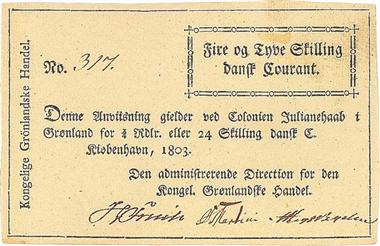 Kongelige Grönlandske Handel.
No. 317.
Fire og Tyve Skilling
dansk Courant.
Denne Anviisning gielder ved Colonien Julianehaab i
Grønland for ¼ Rdlr. eller 24 Skilling dansk C.
Kiøbenhavn, 1803.
Den administrerende Direction for den
Kongel. Grønlandske Handel.